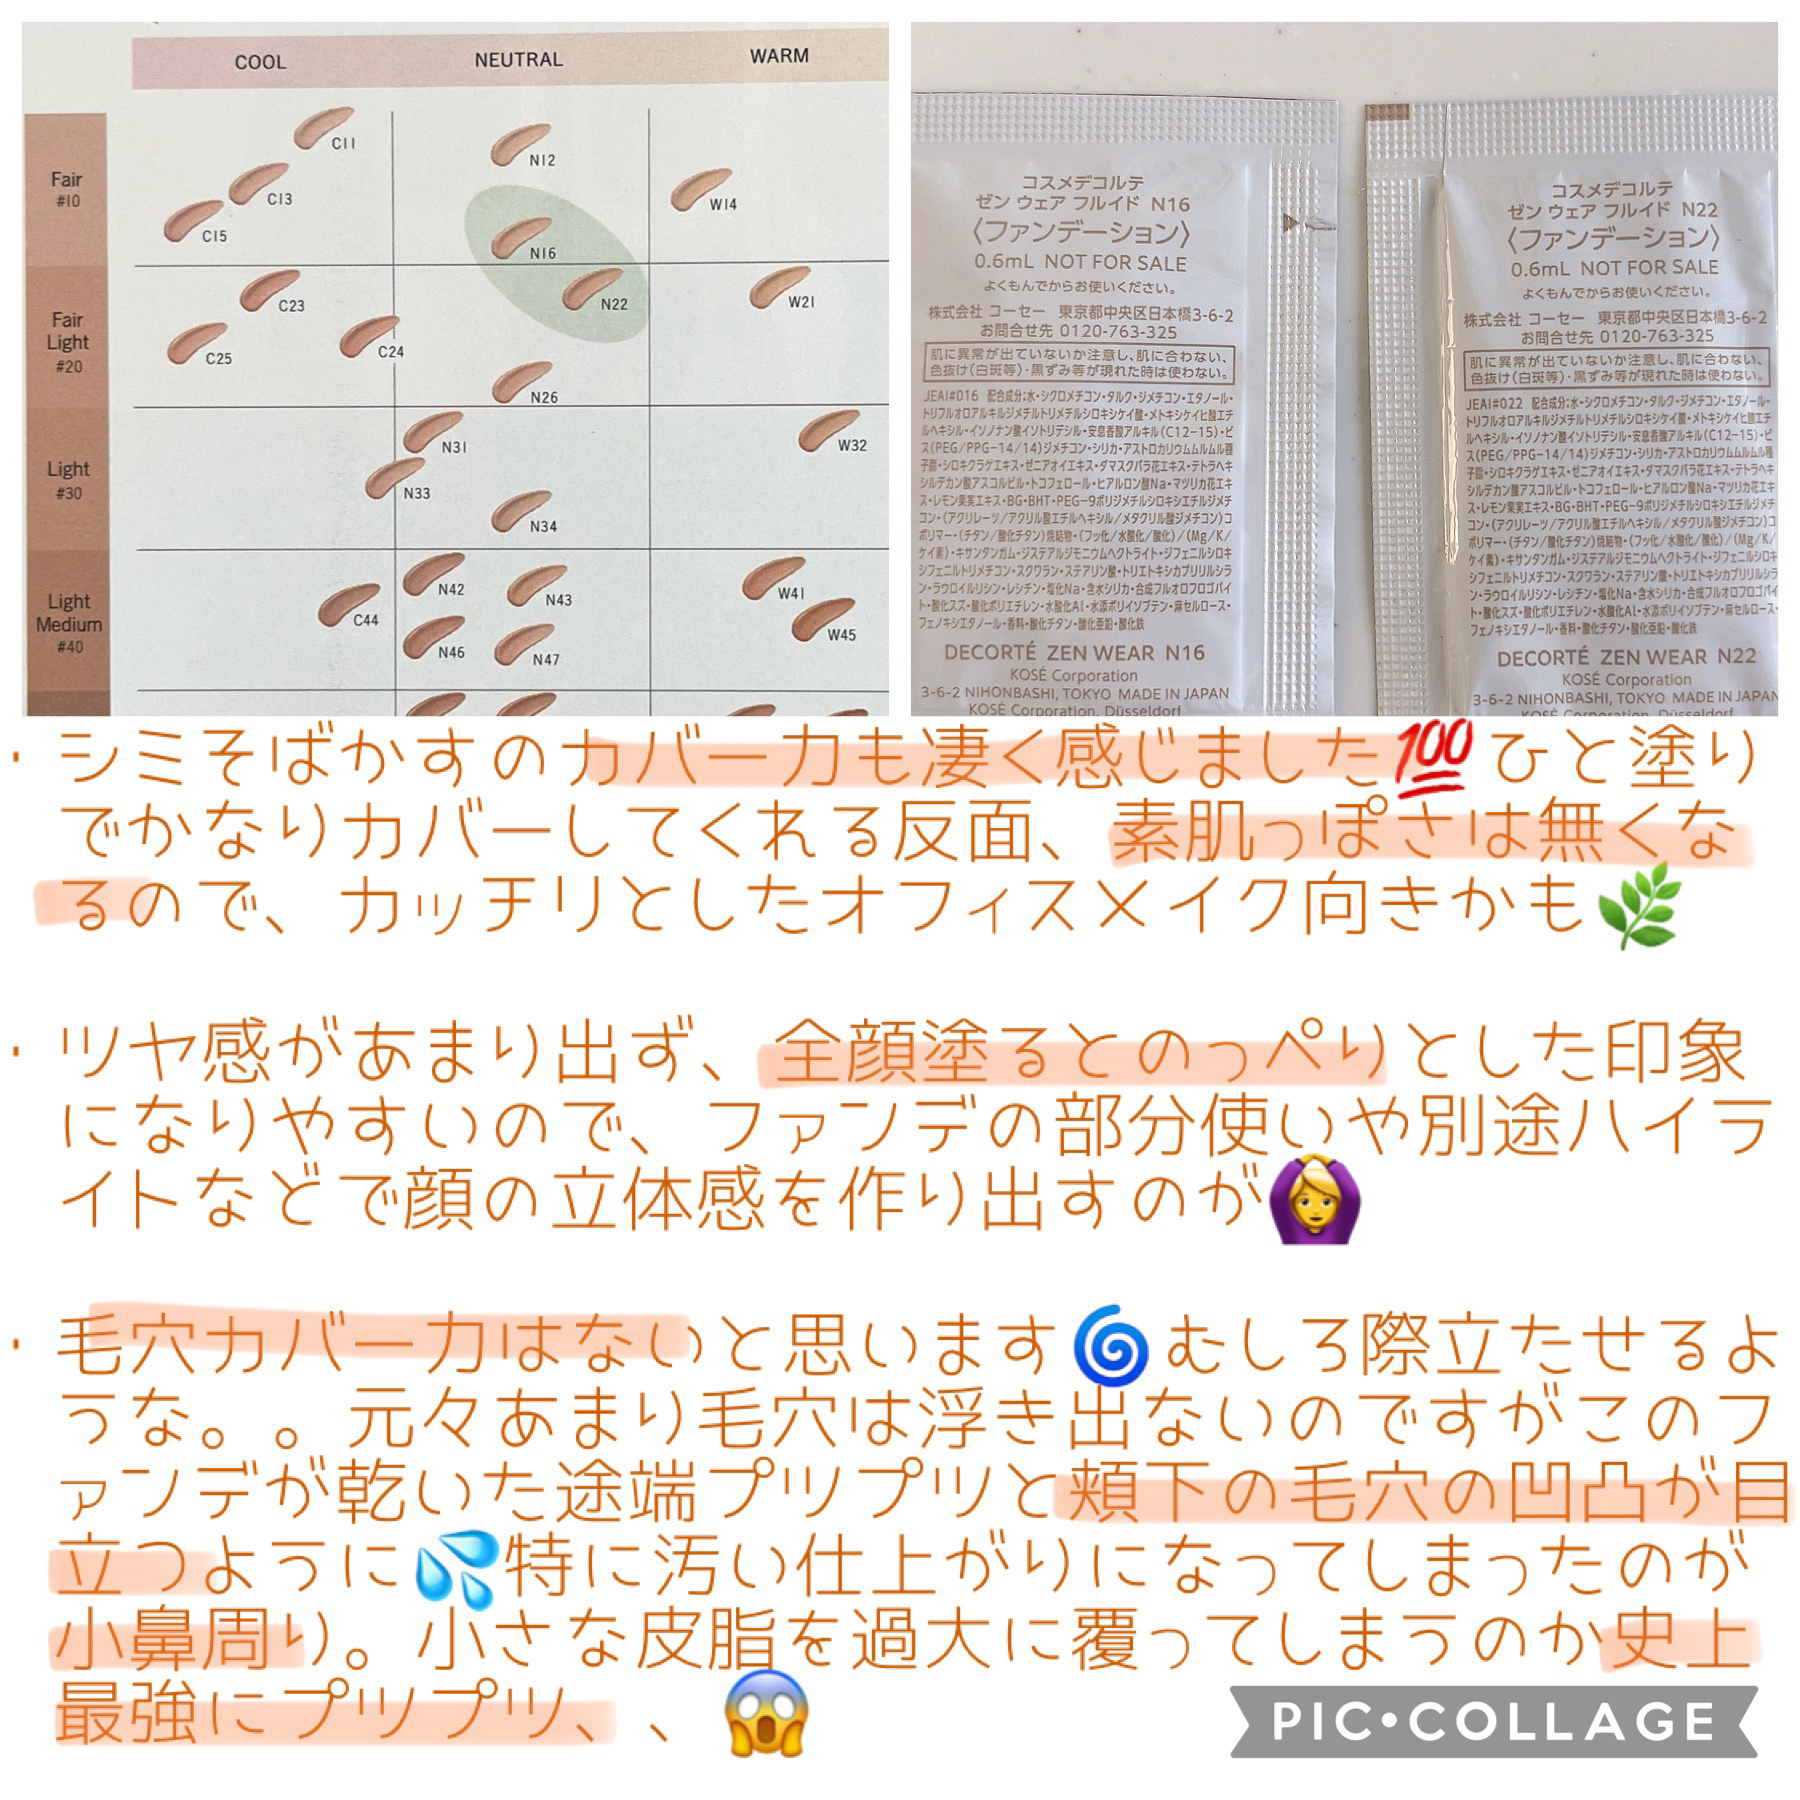 COOL
NEUTRAL
WARM
Fair
#10
C11
C13
C15
N12
N16
W14
Fair
Light
#20
C23
C25
C24
N22
N26
W21
Light
#30
N31
N33
N34
W32
Light
Medium
#40
C44
N42
N43
N46
N47
W41
W45
コスメデコルテ
ゼン ウェア フルイド N16
〈ファンデーション〉
0.6mL NOT FOR SALE
よくもんでからお使いください。
株式会社 コーセー 東京都中央区日本橋3-6-2
お問合せ先 0120-763-325
肌に異常が出ていないか注意し、肌に合わない、
色抜け(白斑等)・黒ずみ等が現れた時は使わない。
JEAI#016 配合成分:水・シクロメチコン・タルク・ジメチコン・エタノール・
トリフルオロアルキルジメチルトリメチルシロキシケイ酸・メトキシケイヒ酸エチ
ルヘキシル・イソノナン酸イソトリデシル・安息香酸アルキル(C12-15)・ビ
ス(PEG/PPG-14/14)ジメチコン・シリカ・アストロカリウムムルムル種
子脂・シロキクラゲエキス・ゼニアオイエキス・ダマスクバラ花エキス・テトラヘキ
シルデカン酸アスコルビル・トコフェロール・ヒアルロン酸Na・マツリカ花エキ
ス・レモン果実エキス・BG・BHT・PEG-9ポリジメチルシロキシエチルジメチ
コン・(アクリレーツ/アクリル酸エチルヘキシル/メタクリル酸ジメチコン)コ
ポリマー・(チタン/酸化チタン)焼結物・(フッ化/水酸化/酸化)/(Mg/K/
ケイ素)・キサンタンガム・ジステアルジモニウムヘクトライト・ジフェニルシロキ
シフェニルトリメチコン・スクワラン・ステアリン酸・トリエトキシカプリリルシラ
ン・ラウロイルリシン・レシチン・塩化Na・含水シリカ・合成フルオロフロゴパイ
ト・酸化スズ・酸化ポリエチレン・水酸化Al・水添ポリイソブテン・麻セルロース・
フェノキシエタノール・香料・酸化チタン・酸化亜鉛・酸化鉄
DECORTÉ ZEN WEAR N16
KOSÉ Corporation
3-6-2 NIHONBASHI, TOKYO MADE IN JAPAN
KOSÉ Corporation, Düsseldorf
コスメデコルテ
ゼン ウェア フルイド N22
〈ファンデーション〉
0.6mL NOT FOR SALE
よくもんでからお使いください。
株式会社 コーセー 東京都中央区日本橋3-6-2
お問合せ先 0120-763-325
肌に異常が出ていないか注意し、肌に合わない、
色抜け(白斑等)・黒ずみ等が現れた時は使わない。
JEAI#022 配合成分:水・シクロメチコン・タルク・ジメチコン・エタノール・
トリフルオロアルキルジメチルトリメチルシロキシケイ酸・メトキシケイヒ酸エチ
ルヘキシル・イソノナン酸イソトリデシル・安息香酸アルキル(C12-15)・ビ
ス(PEG/PPG-14/14)ジメチコン・シリカ・アストロカリウムムルムル種
子脂・シロキクラゲエキス・ゼニアオイエキス・ダマスクバラ花エキス・テトラヘキ
シルデカン酸アスコルビル・トコフェロール・ヒアルロン酸Na・マツリカ花エキ
ス・レモン果実エキス・BG・BHT・PEG-9ポリジメチルシロキシエチルジメチ
コン・(アクリレーツ/アクリル酸エチルヘキシル/メタクリル酸ジメチコン)コ
ポリマー・(チタン/酸化チタン)焼結物・(フッ化/水酸化/酸化)/(Mg/K/
ケイ素)・キサンタンガム・ジステアルジモニウムヘクトライト・ジフェニルシロキ
シフェニルトリメチコン・スクワラン・ステアリン酸・トリエトキシカプリリルシラ
ン・ラウロイルリシン・レシチン・塩化Na・含水シリカ・合成フルオロフロゴパイ
ト・酸化スズ・酸化ポリエチレン・水酸化Al・水添ポリイソブテン・麻セルロース・
フェノキシエタノール・香料・酸化チタン・酸化亜鉛・酸化鉄
DECORTÉ ZEN WEAR N22
KOSÉ Corporation
3-6-2 NIHONBASHI, TOKYO MADE IN JAPAN
KOSÉ Corporation, Düsseldorf
・シミそばかすのカバー力も凄く感じました💯ひと塗り
でかなりカバーしてくれる反面、素肌っぽさは無くな
るので、カッチリとしたオフィスメイク向きかも🌿
・ツヤ感があまり出ず、全顔塗るとのっぺりとした印象
になりやすいので、ファンデの部分使いや別途ハイラ
イトなどで顔の立体感を作り出すのが🙆‍♀️
・毛穴カバー力はないと思います🌀むしろ際立たせるよ
うな。。元々あまり毛穴は浮き出ないのですがこのフ
ァンデが乾いた途端プツプツと頬下の毛穴の凹凸が目
立つように💦特に汚い仕上がりになってしまったのが
小鼻周り。小さな皮脂を過大に覆ってしまうのか史上
最強にプツプツ、、😱
PIC•COLLAGE